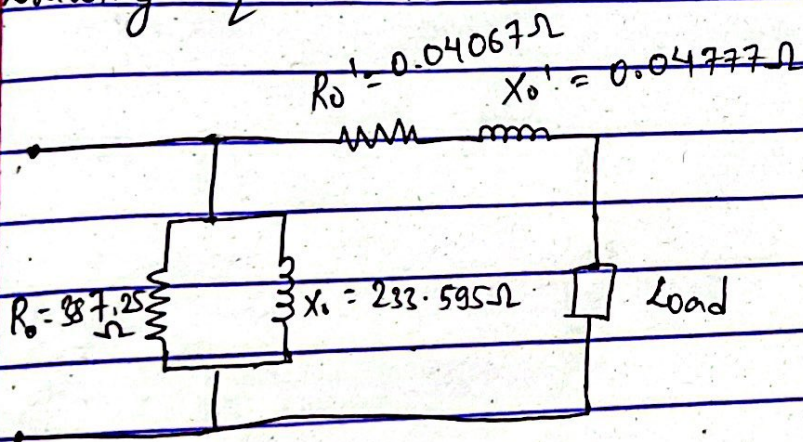 R₀' = 0.04067Ω
X₀' = 0.04777Ω
R₀ = 387.25
Ω
X₀ = 233.595Ω
Load